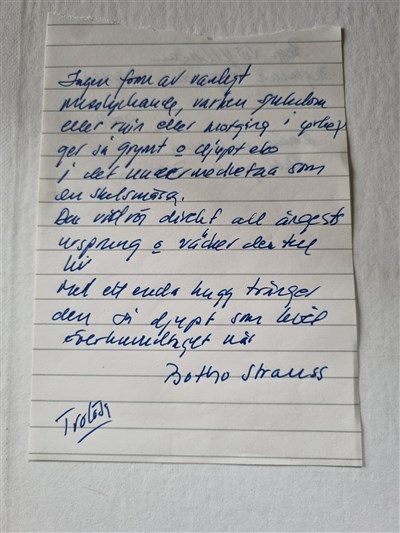 Ingen form av vanligt
misslyckande, varken sjukdom
eller ruin eller motgång i
ger så grymt o djupt eko
i det undermedvetna som
en skilsmässa.
Den vidrör direkt all ångests
ursprung o väcker den till
liv
Med ett enda hugg tränger
den så djupt som livet
överhuvudtaget når
Botho Strauss